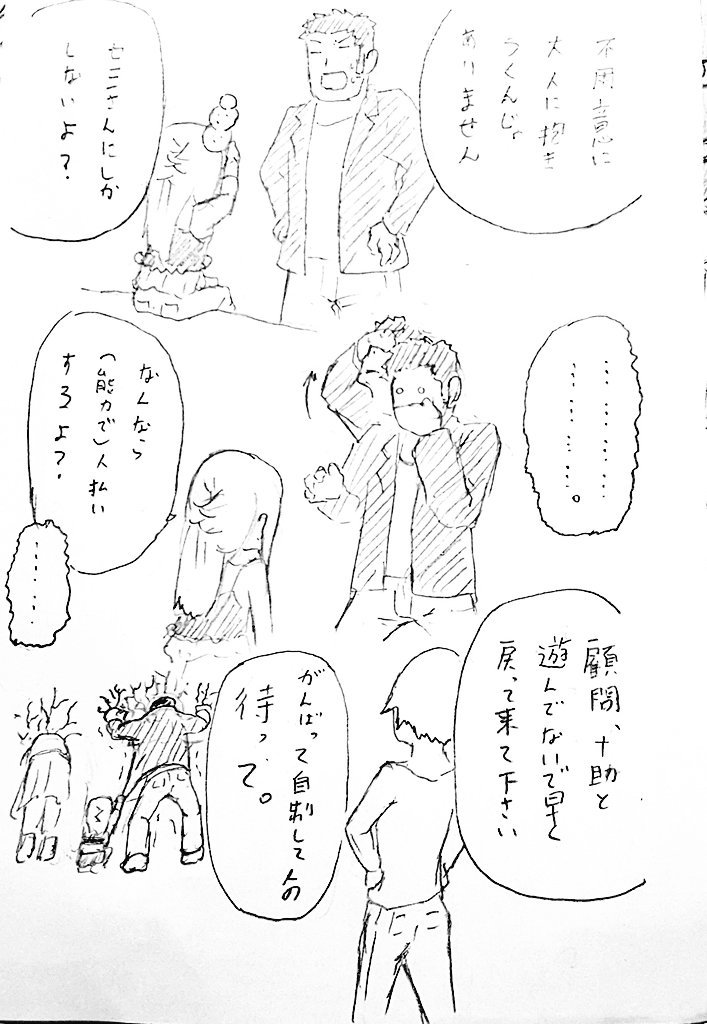 不用意に
大人に抱き
つくんじゃ
ありません
セニさんにしか
しないよ？
…………
…………。
なんなら
(能力で)人払い
するよ？
…………
顧問、十助と
遊んでないで早く
戻って来て下さい
がんばって自制してんの
待って。